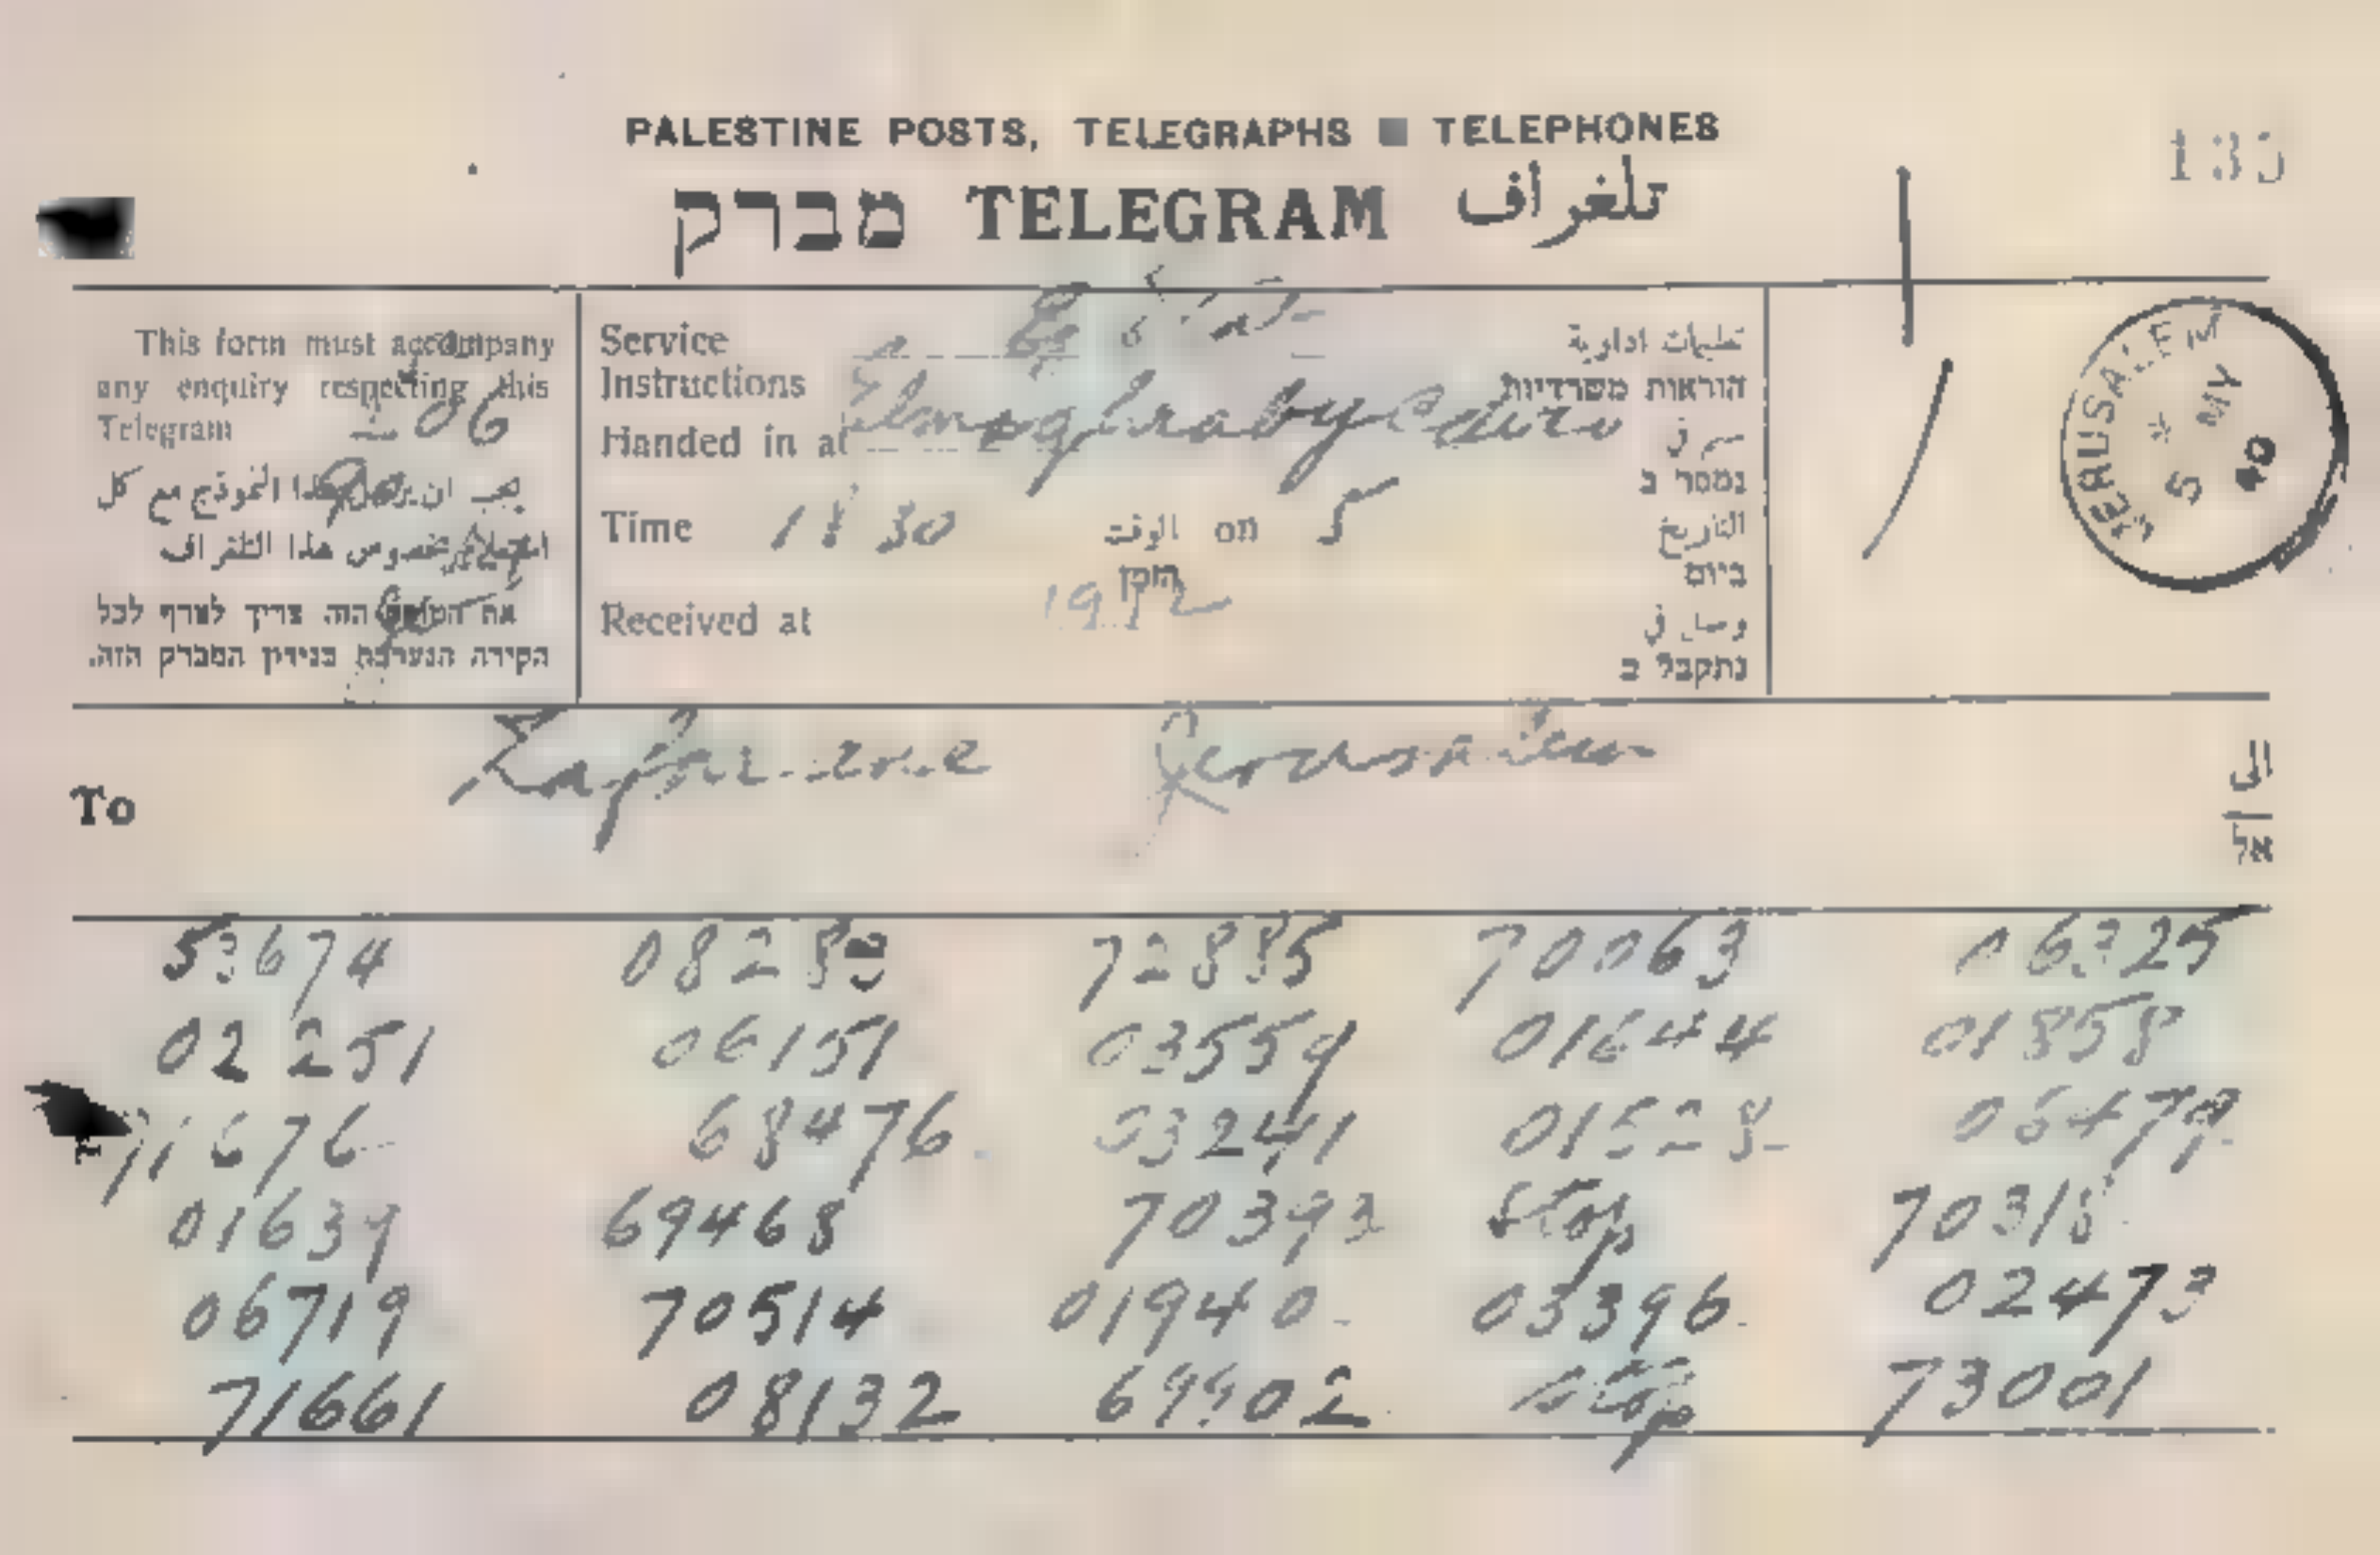 135
PALESTINE POSTS, TELEGRAPHS TELEPHONES
מברק TELEGRAM تلغراف
This form must accompany
any enquiry respecting this
Telegram
206
90
يجب ان هذا النموذج مع كل
بخصوص هذا التلغراف
את הזה צריך לצרף לכל
חקירה הנערכת בנידון המברק הזה.
Service
Instructions
תעليمات
הוראות משרדיות
Handed in at Elmaghraby Cairo
נמסר ב
Time 18 30 الوقت on 5 التاريخ
הזמן ביום
Received at 1912 وصل في
נתקבל ב
JERUSALEM
5 MY 40
To Jerusalem الى
אל
53674 72885 06325
02251 06151 03559 01644 01858
71676 68476 03241 01528
01639 69468 70393 Stop 70318
06719 70514 01940 03396 02473
71661 08132 69902 stop 73001